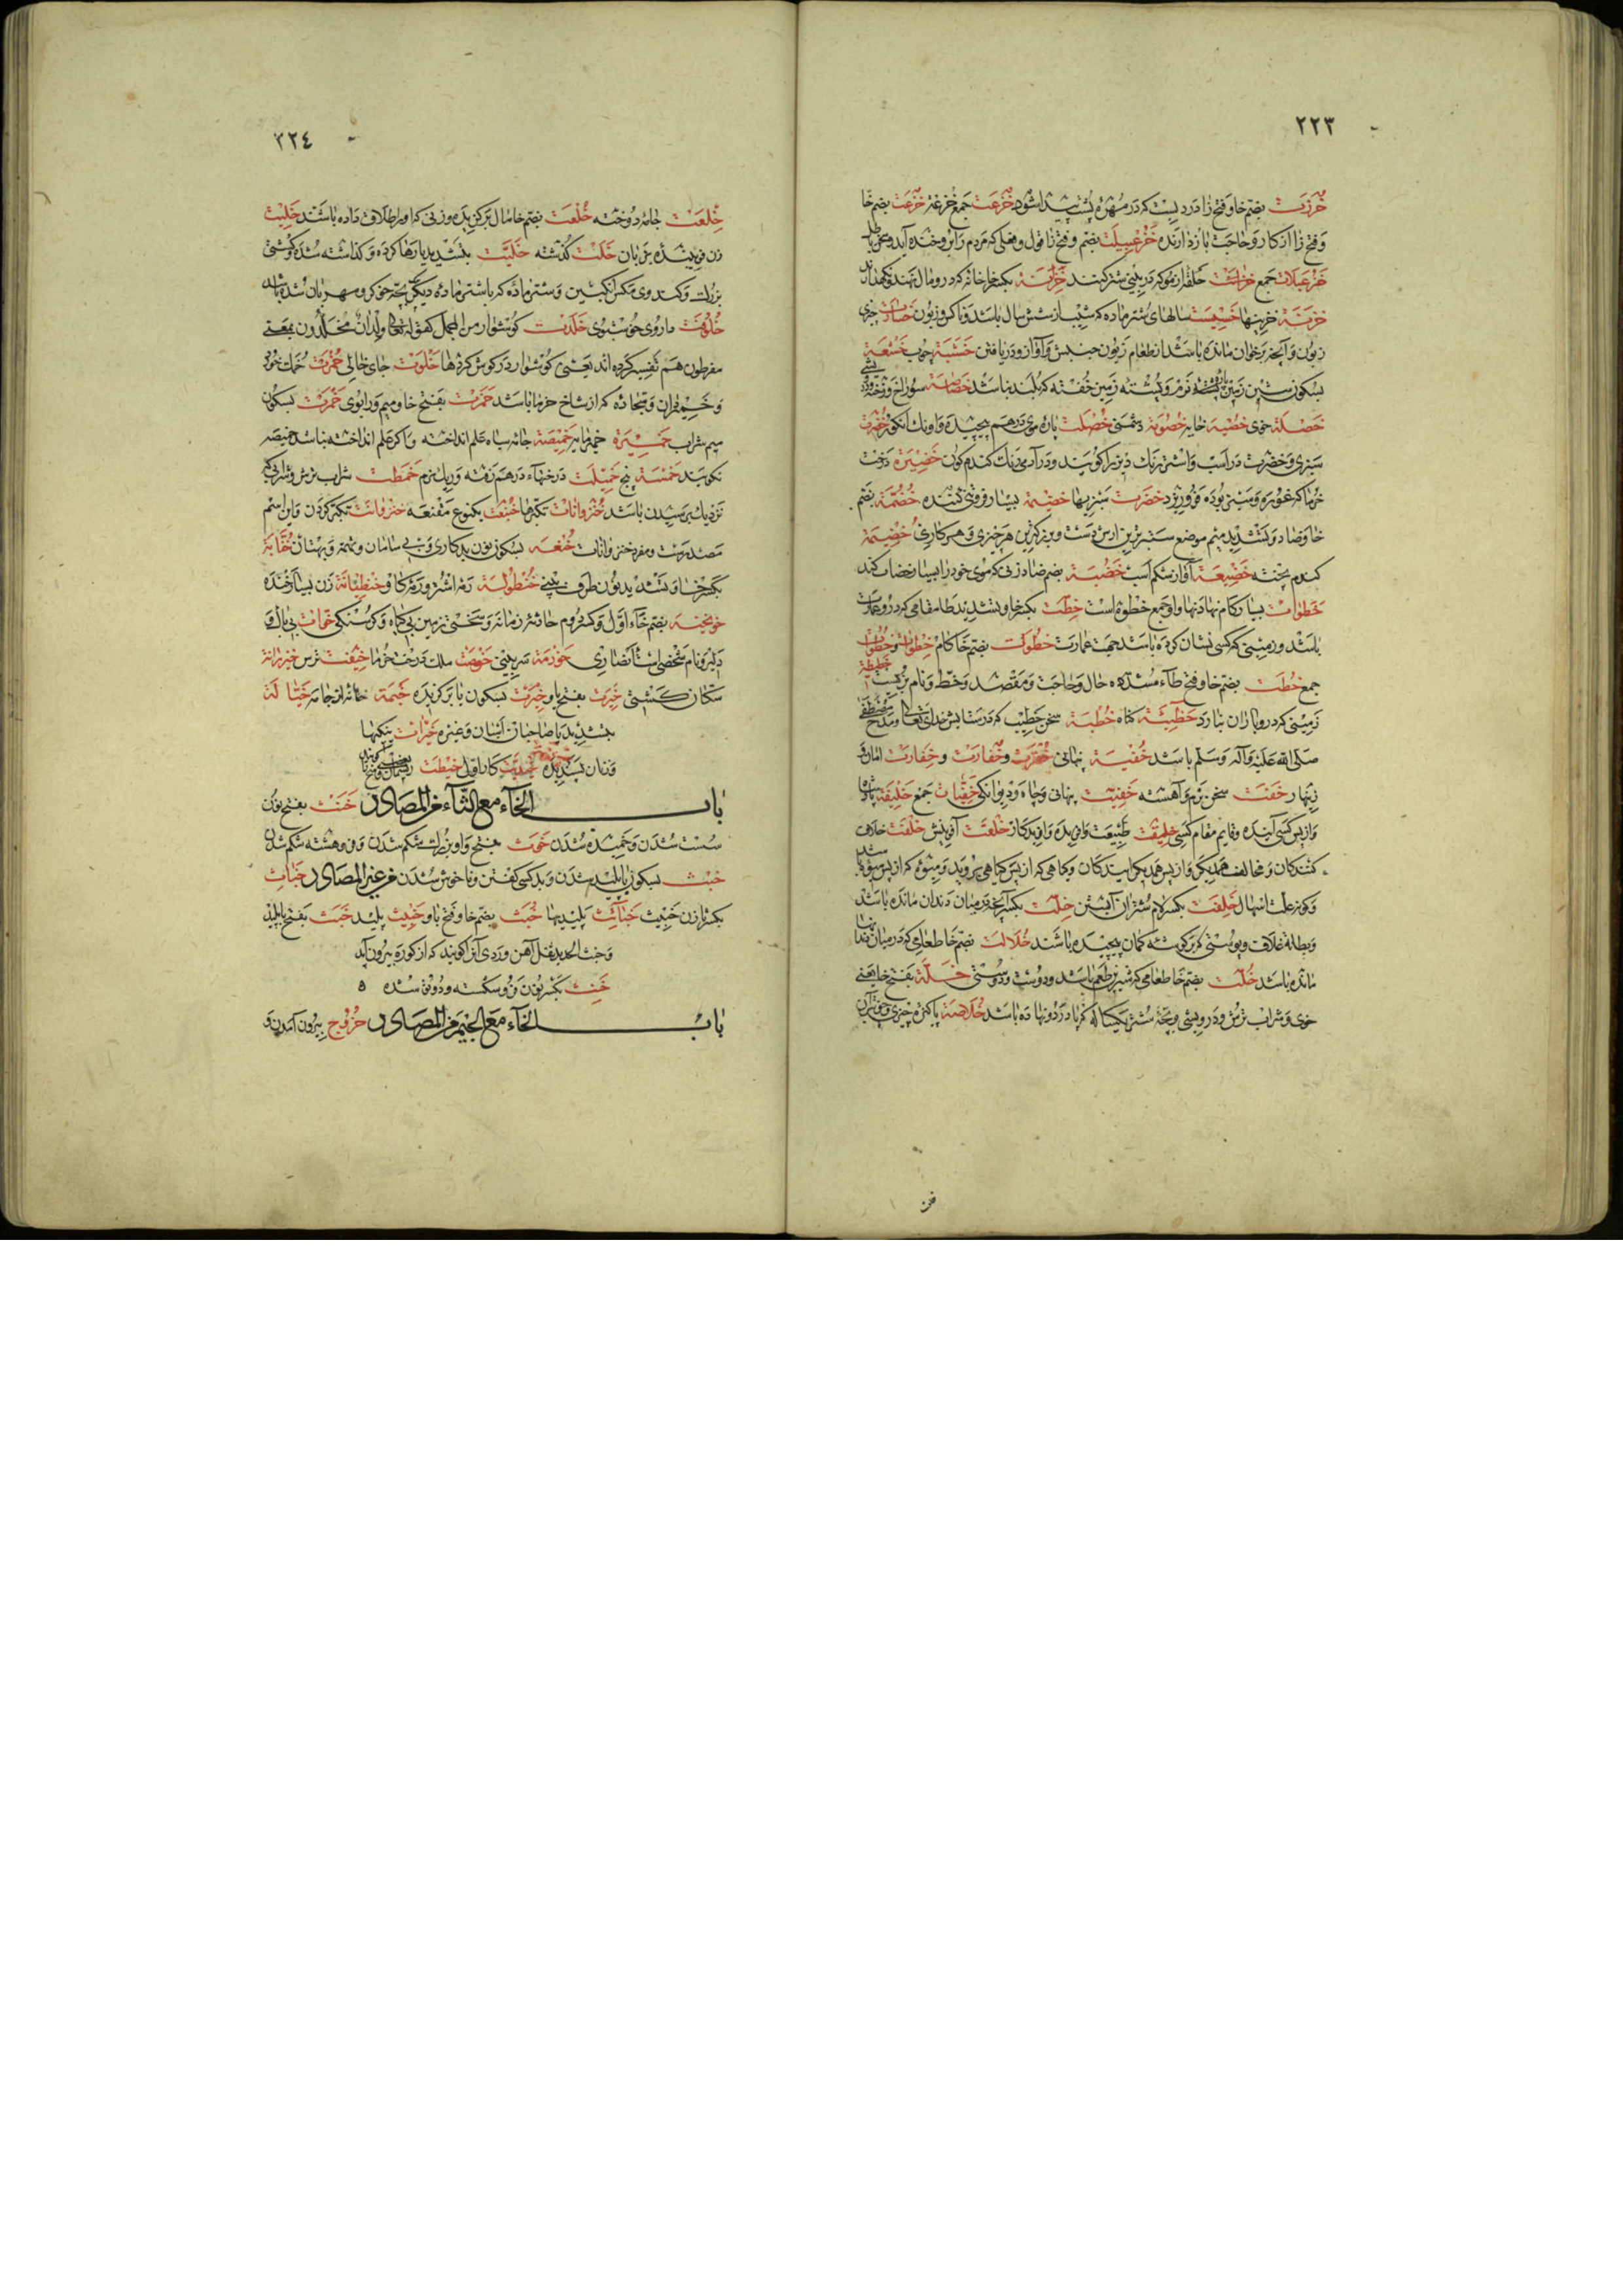 ٢٢٣
خُرزت بضم خا و فتح زا دردیست که در مهرهٔ پشت پیدا شود خزعت جمع خُزعَة خزعت بضم خا
و فتح زا از کار و حاجت باز دارنده خزعبیلت بضم و فتح زا قول و فعلی که مردم را بر وی خنده آید و سخن باطل
خزعبلات جمع خزامت حلقهٔ از مو که در بینی شتر کنند خزانة بکسر خا خانهٔ که در و مال نهند و نگهدارند
خزینة خزینها خسیست سالهای شتر ماده که بیش از شش سال باشد و ناکس و زبون خسارت چیزی
زبون و آنچه بر خوان مانده باشد از طعام زبون جنبش و آواز و دریافتن خَشَبَة چوب خشعة
بسکون شین زمین و پشته زمین خفته که بلند نباشد خصاصة سوراخ و رخنه
خصلة خوی خصیة خایه خصومة دشمنی خُصلت پارهٔ موی درهم پیچیده و اونک انگور خضرت
سبزی و خضرت در اسب و اشتر رنگ دیزه را گویند و در آدمی رنگ گندم گون خضیرة درخت
خرما که غوره و سبز بوده فرو ریزد خضرت سبزیها خضمة بسیار فروتنی کننده خُضُمّة بضم
خا و ضاد و تشدید میم موضع سبزترین ارش دست و بزرگترین هر چیزی و هر کاری خضیمة
گندم پخته خضیعة آواز شکم اسب خضبة بضم ضاد زنی که موی خود را بسیار خضاب کند
خطوات بسیار گام نهادنها و او جمع خطوة است خِطّت بکسر خا و تشدید طا مقامی که در و عمارت
باشد و زمینی که کسی نشان کرده باشد جهت عمارت خطوت بضم خا گام خطوات و خطوات
جمع خطت بضم خا و فتح طاء مشدده حال و حاجت و مقصد و خط و نام بزیست خطیطة
زمینی که در و باران نبارد خطیئة گناه خُطبة سخن خطیب که در ستایش خدای تعالی و مدح مصطفی
صلی الله علیه و آله و سلم باشد خُفیة پنهانی خفرت و خفارت و خِفارت امان و
زینهار خفت سخن نرم و آهسته خفیت پنهانی و چاه و دیوانگی خفقان جمع خلیفة پادشاه
و از پس کسی آینده و قایم مقام کسی خلیقت طبیعت و آفریده و آفریدگار خلقت آفرینش خلفت خلاف
کنندگان و مخالف همدیگر و از پس همدیگر آیندگان و گیاهی که از پس گیاهی بروید و میوهٔ که از پس میوه پیدا شد
و کوز علت اسهال خلفت بکسر لام شتران آبستن خلت بکسر آنچه در میان دندان مانده باشد
و بطانهٔ غلاف و پوستی که بر گوشهٔ کمان پیچیده باشند خُلالت بضم خا طعامی که در میان دندانها
مانده باشد خُلت بضم خا طعامی که شیرین طعم باشد و دوست و دوستی خلّة بفتح خا یعنی
خوی و شراب ترش و درویشی و بچهٔ شتر یکساله که پا در دو نهاده باشد خُلاصة پاکیزهٔ چیزی و
٢٢٤
خِلعت جامهٔ دوخته خُلعت بضم خا مال برگزیده و زنی که او را طلاق داده باشند خلیت
زن فریبنده بزبان خلت گذشته خلیّت بتشدید یا رها کرده و گذاشته شده و کشتی
بزرگ و کندوی مگس انگبین و شتر ماده که با شتر مادهٔ دیگر بر بچه خو کر و مهربان شده باشد
خُلوقت داروی خوشبوی خلدت گوشوار من المجمل کقوله تعالی ولدان مخلدون بمعنی
مقرطون هم تفسیر کرده اند یعنی گوشوار در گوش کردها خلوت جای خالی خُمرت خمک خورد
و خمیر نان و سجادهٔ که از شاخ خرما باشد خمرت بفتح خا و میم و را بوی خمرت بسکون
میم شراب خمیرة خمیر مایه خمیصة جامه سیاه علم انداخته و اگر علم انداخته نباشد خمیصه
نگویند خمسة پنج خمیلت درختهاء درهم رفته و ریگ نرم خمطت شراب ترش و شرابی که
نزدیک برسیدن باشد خُنزوانات تکبرها خنبعت یکنوع مقنعه خنزوانت تکبر کردن و این اسم
مصدریست و مفرد خنزوانات خُنعه بسکون نون بدکاری و بی سامان و تهمة و بهتان خُنّابة
بکسر خا و تشدید نون طرف بینی خُنطولة رمهٔ اشتر و رمهٔ گاو خنظیانة زن بسیار خنده
خویخیة بضم خاء اول و کسر دوم حادثهٔ زمانه و سختی زمین بی گیاه و گرسنگی خوات بی باک و
دلیر و نام شخصی است انصاری خورمة سر بینی خوصت یک درخت خرما خیفت ترس خیزرانة
سکان کشتی خیرت بفتح یا و خِیرت بسکون یا برگزیده خیمة خانهٔ از جامه خیّالة
بتشدید یا صاحبان اسبان و غیره خیرات نیکیها
و زنان پسندیده کار اول خیطت
باب الخاء مع الثاء من المصادر خنث بفتح نون
سست شدن و خمیده شدن خوث بفتح واو بزرگ شکم شدن و فروهشته شکم شدن
خبث بسکون با پلید شدن و بد کسی گفتن و ناخوش شدن من غیر المصادر خباث
بکسر ثا زن خبیث خبائث پلیدیها خُبَث بضم خا و فتح با و خبیث پلید خبث بفتح با پلید
و خبث الحدید ثفل آهن و ردی آنرا گویند که از کوره بیرون آید
خنِث بکسر نون فرو شکسته و دوتو شده ٥
باب الخاء مع الجیم من المصادر خروج بیرون آمدن و